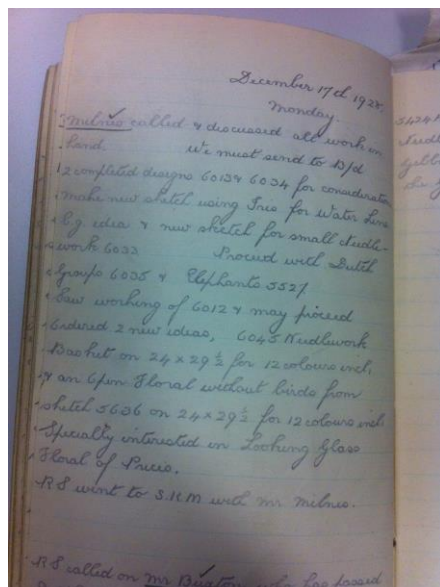 December 17th 1928.
Monday.
Milnes called & discussed all work in
hand. We must send to B/d
2 completed designs 6013 & 6034 for consideration
make new sketch using Tree for Water Lines
b.g. idea & new sketch for small Needle-
work 6033 Proceed with Dutch
Groups 6035 & Elephants 5527
Saw working of 6012 & may proceed
Ordered 2 new ideas, 6045 Needlework
Basket on 24 x 29½ for 12 colours incl.
& an Open Floral without birds from
sketch 5636 on 24 x 29½ for 12 colours incl
Specially interested in Looking Glass
Floral of Precis.
RS went to S.K.M with Mr Milnes.
RS called on Mr who has passed
5424
Needle